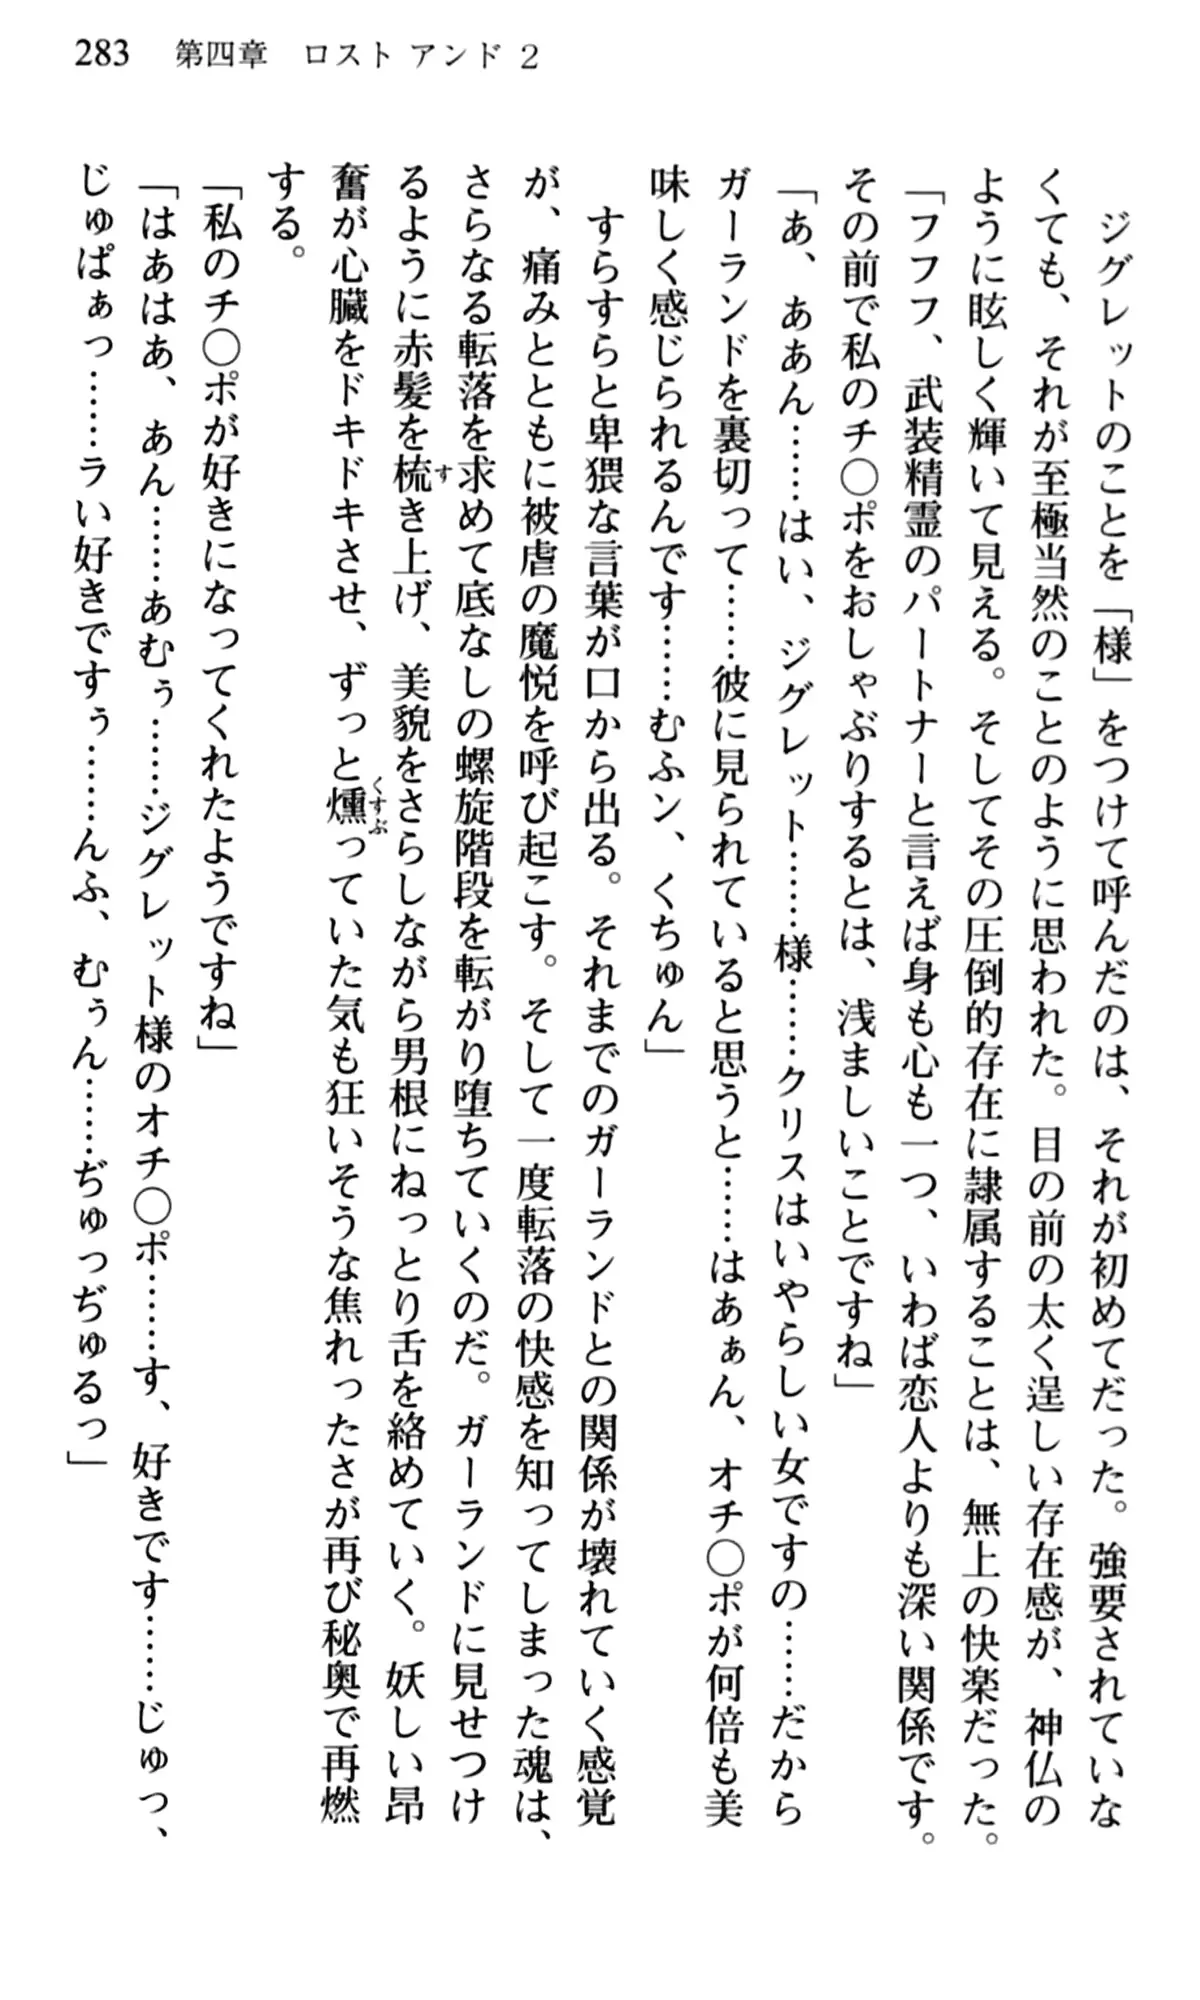 283　第四章　ロスト アンド 2
　ジグレットのことを「様」をつけて呼んだのは、それが初めてだった。強要されていな
くても、それが至極当然のことのように思われた。目の前の太く逞しい存在感が、神仏の
ように眩しく輝いて見える。そしてその圧倒的存在に隷属することは、無上の快楽だった。
「フフフ、武装精霊のパートナーと言えば身も心も一つ、いわば恋人よりも深い関係です。
その前で私のチ〇ポをおしゃぶりするとは、浅ましいことですね」
「あ、ああん……はい、ジグレット……様……クリスはいやらしい女ですの……だから
ガーランドを裏切って……彼に見られていると思うと……はあぁん、オチ〇ポが何倍も美
味しく感じられるんです……むふン、くちゅん」
　すらすらと卑猥な言葉が口から出る。それまでのガーランドとの関係が壊れていく感覚
が、痛みとともに被虐の魔悦を呼び起こす。そして一度転落の快感を知ってしまった魂は、
さらなる転落を求めて底なしの螺旋階段を転がり堕ちていくのだ。ガーランドに見せつけ
るように赤髪を梳き上げ、美貌をさらしながら男根にねっとり舌を絡めていく。妖しい昂
奮が心臓をドキドキさせ、ずっと燻っていた気も狂いそうな焦れったさが再び秘奥で再燃
する。
「私のチ〇ポが好きになってくれたようですね」
「はあはあ、あん……あむぅ……ジグレット様のオチ〇ポ……す、好きです……じゅっ、
じゅぱぁっ……ラい好きですぅ……んふ、むぅん……ぢゅっぢゅるっ」